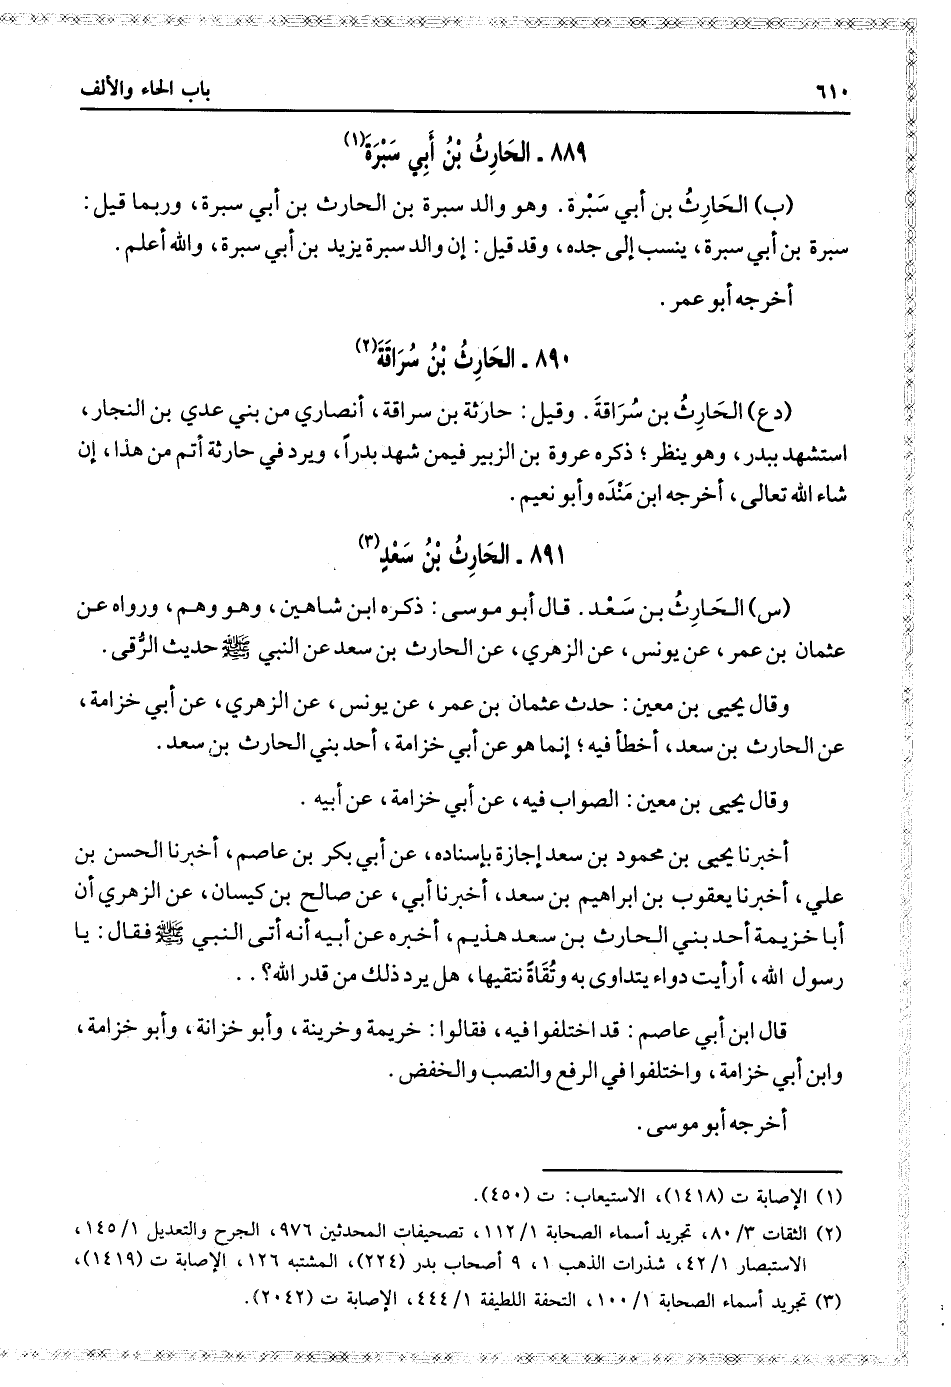 ٦١٠ باب الحاء والألف
٨٨٩ ـ الحَارِثُ بْنُ أَبِي سَبْرَةَ(١)
(ب) الحَارِثُ بن أبي سَبْرة. وهو والد سبرة بن الحارث بن أبي سبرة، وربما قيل:
سبرة بن أبي سبرة، ينسب إلى جده، وقد قيل: إن والد سبرة يزيد بن أبي سبرة، والله أعلم.
أخرجه أبو عمر.
٨٩٠ ـ الحَارِثُ بْنُ سُرَاقَةَ(٢)
(دع) الحَارِثُ بن سُرَاقةَ. وقيل: حارثة بن سراقة، أنصاري من بني عدي بن النجار،
استشهد ببدر، وهو ينظر؛ ذكره عروة بن الزبير فيمن شهد بدراً، ويرد في حارثة أتم من هذا، إن
شاء الله تعالى، أخرجه ابن مَنْدَه وأبو نعيم.
٨٩١ ـ الحَارِثُ بْنُ سَعْدٍ(٣)
(س) الحَارِثُ بن سَعْد. قال أبو موسى: ذكره ابن شاهين، وهو وهم، ورواه عن
عثمان بن عمر، عن يونس، عن الزهري، عن الحارث بن سعد عن النبي ﷺ حديث الرُّقى.
وقال يحيى بن معين: حدث عثمان بن عمر، عن يونس، عن الزهري، عن أبي خزامة،
عن الحارث بن سعد، أخطأ فيه؛ إنما هو عن أبي خزامة، أحد بني الحارث بن سعد.
وقال يحيى بن معين: الصواب فيه، عن أبي خزامة، عن أبيه.
أخبرنا يحيى بن محمود بن سعد إجازة بإسناده، عن أبي بكر بن عاصم، أخبرنا الحسن بن
علي، أخبرنا يعقوب بن ابراهيم بن سعد، أخبرنا أبي، عن صالح بن كيسان، عن الزهري أن
أبا خزيمة أحد بني الحارث بن سعد هذيم، أخبره عن أبيه أنه أتى النبي ﷺ فقال: يا
رسول الله، أرأيت دواء يتداوى به وتُقَاةً نتقيها، هل يرد ذلك من قدر الله؟..
قال ابن أبي عاصم: قد اختلفوا فيه، فقالوا: خريمة وخرينة، وأبو خزانة، وأبو خزامة،
وابن أبي خزامة، واختلفوا في الرفع والنصب والخفض.
أخرجه أبو موسى.
(١) الإصابة ت (١٤١٨)، الاستيعاب: ت (٤٥٠).
(٢) الثقات ٣/ ٨٠، تجريد أسماء الصحابة ١/ ١١٢، تصحيفات المحدثين ٩٧٦، الجرح والتعديل ١/ ١٤٥،
الاستبصار ١/ ٤٢، شذرات الذهب ١، ٩ أصحاب بدر (٢٢٤)، المشتبه ١٢٦، الإصابة ت (١٤١٩)،
(٣) تجريد أسماء الصحابة ١/ ١٠٠، التحفة اللطيفة ١/ ٤٤٤، الإصابة ت (٢٠٤٢).